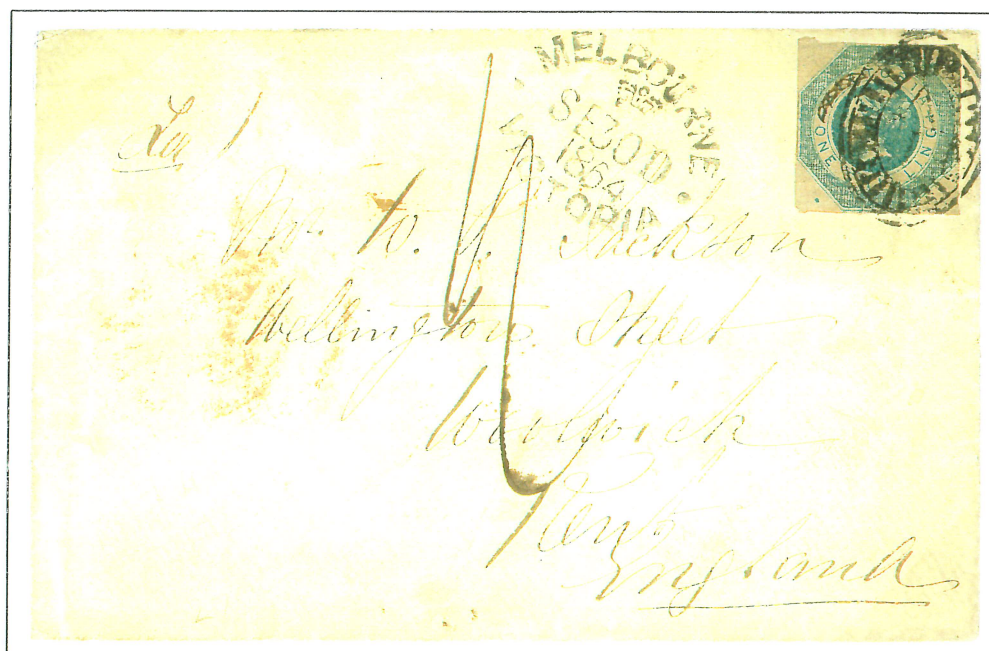 MELBOURNE
SE 30 D
1854
VICTORIA
ONE
Mr. W. J. Jackson
Wellington Street
Woolwich
Kent
England